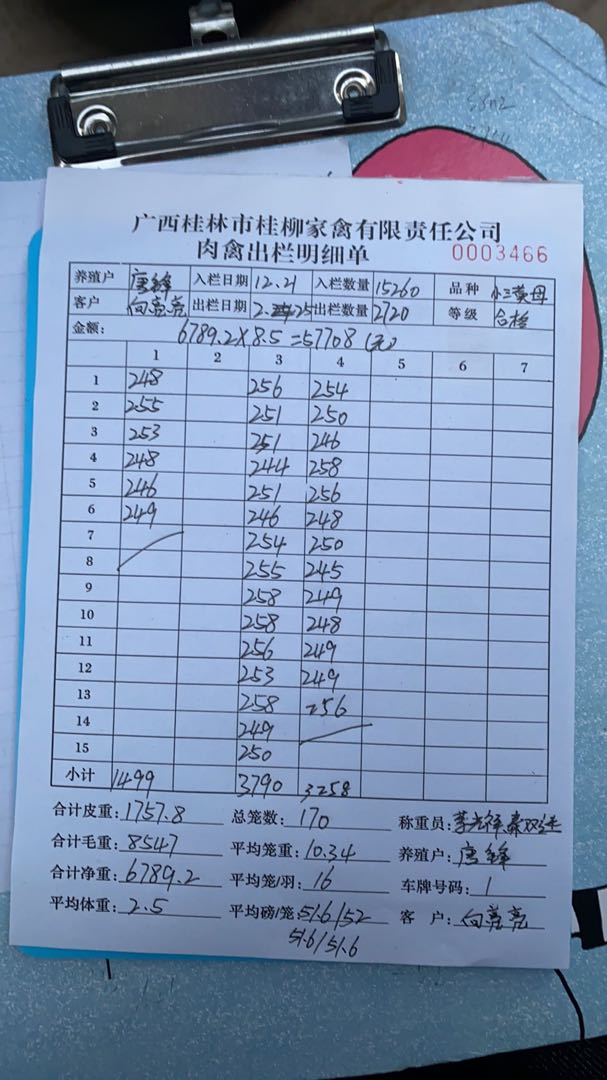 广西桂林市桂柳家禽有限责任公司
肉禽出栏明细单 0003466
养殖户 唐锋 入栏日期 12.21 入栏数量 15260 品种 小三黄母
客户 向亮亮 出栏日期 2.25 出栏数量 2720 等级 合格
金额: 6789.2×8.5=57708(元)
1 2 3 4 5 6 7
1 248 256 254
2 255 251 250
3 253 251 246
4 248 244 258
5 246 251 256
6 249 246 248
7 254 250
8 255 245
9 258 249
10 258 248
11 256 249
12 253 249
13 258 256
14 249
15 250
小计 1499 3790 3258
合计皮重: 1757.8 总笼数: 170 称重员:
合计毛重: 8547 平均笼重: 10.34 养殖户: 唐锋
合计净重: 6789.2 平均笼/羽: 16 车牌号码: 1
平均体重: 2.5 平均磅/笼: 51.6/52 客 户: 向亮亮
51.6/51.6